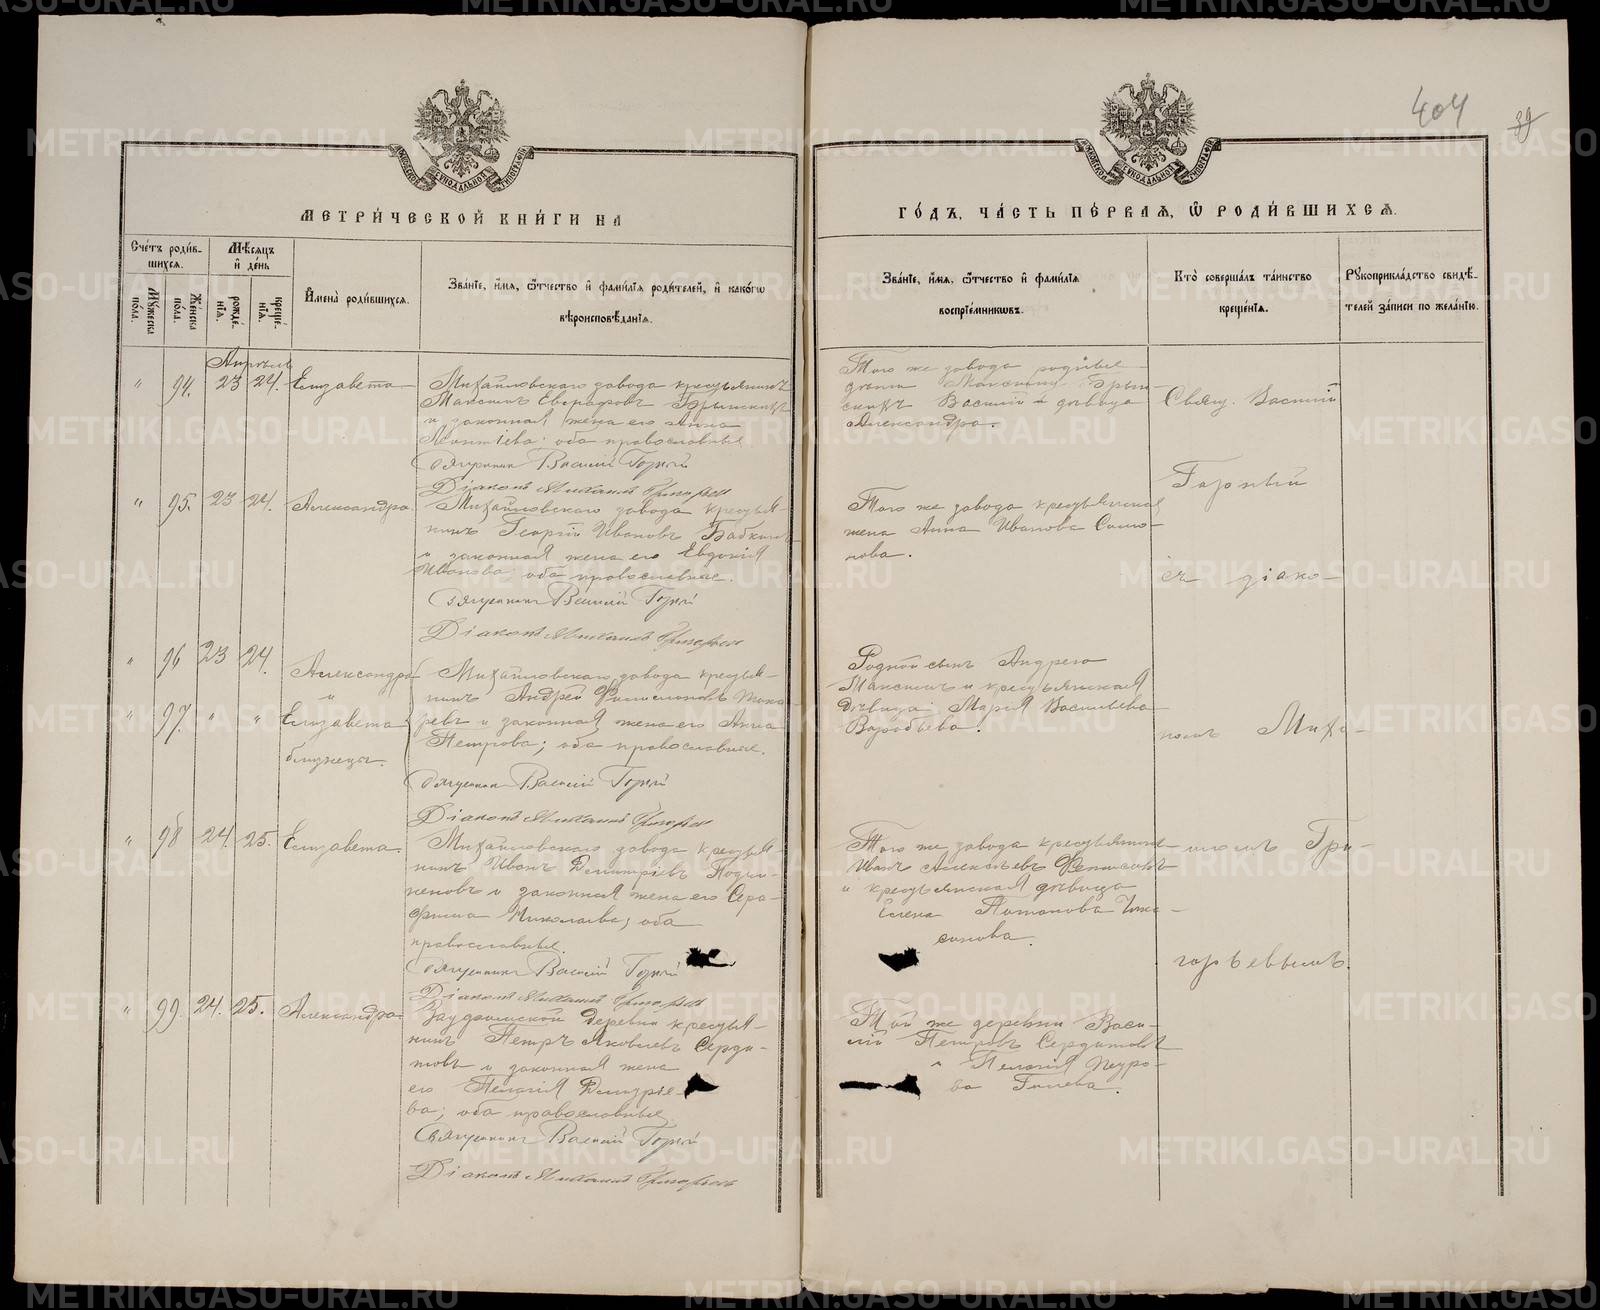 404
39
МЕТРИ́ЧЕСКОЙ КНИ́ГИ НА
ГО́ДЪ, ЧА́СТЬ ПЕ́РВАЯ, Ѡ РОДИ́ВШИХСЯ.
Сче́тъ роди́в-
шихся.
Мѣ́сяцъ
и де́нь
Му́жеска по́ла.
Же́нска по́ла.
рожде́-
нія.
креще́-
нія.
Имена̀ роди́вшихся.
Зва́ніе, и́мя, ѻ́тчество и фами́лія роди́телей, и како́гѡ
вѣроисповѣ́данія.
Зва́ніе, и́мя, ѻ́тчество и фами́лія
воспріе́мниковъ.
Кто̀ соверша́лъ та́инство
креще́нія.
Рукоприкла́дство свидѣ́-
телей за́писи по жела́нію.
Апрѣль
" 94. 23 24. Елизавета
Михайловскаго завода крестьянинъ
Максимъ Евграфовъ
и законная жена его Анна
Леонтіева оба православные
Священникъ Василій Горный
Діаконъ Михаилъ Григорьевъ
Того же завода родные
дѣти Максима
Василій и дѣвица
Александра.
Свящ. Василій
Горный
съ діако-
номъ Миха-
иломъ Гри-
горьевымъ.
" 95. 23 24. Александра
Михайловскаго завода крестья-
нинъ Георгій Ивановъ Бабкинъ
и законная жена его Евдокія
Иванова оба православные.
Священникъ Василій Горный
Діаконъ Михаилъ Григорьевъ
Того же завода крестьянская
жена Анна Иванова
" 96 23 24. Александра
и
" 97. " " Елизавета
близнецы.
Михайловскаго завода крестья-
нинъ Андрей Филимоновъ Тока-
ревъ и законная жена его Анна
Петрова; оба православные.
Священникъ Василій Горный
Діаконъ Михаилъ Григорьевъ
Родной сынъ Андрея
Максимъ и крестьянская
дѣвица Марія Васильева
Воробьева.
" 98 24. 25. Елизавета.
Михайловскаго завода крестья-
нинъ Иванъ Димитріевъ
и законная жена его Сера-
фима Николаева, оба
православные.
Священникъ Василій Горный
Діаконъ Михаилъ Григорьевъ
Того же завода крестьянинъ
Иванъ Алексѣевъ
и крестьянская дѣвица
Елена
" 99. 24. 25. Александра
деревни крестья-
нинъ Петръ Яковлевъ Серди-
товъ и законная жена
его Пелагія Димитріе-
ва; оба православные
Священникъ Василій Горный
Діаконъ Михаилъ Григорьевъ
Той же деревни Васи-
лій Петровъ Сердитовъ
и Пелагія Петро-
ва Гилева.
METRIKI.GASO-URAL.RU